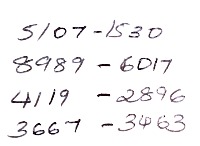 5107 - 1530
8989 - 6017
4119 - 2896
3667 - 3463